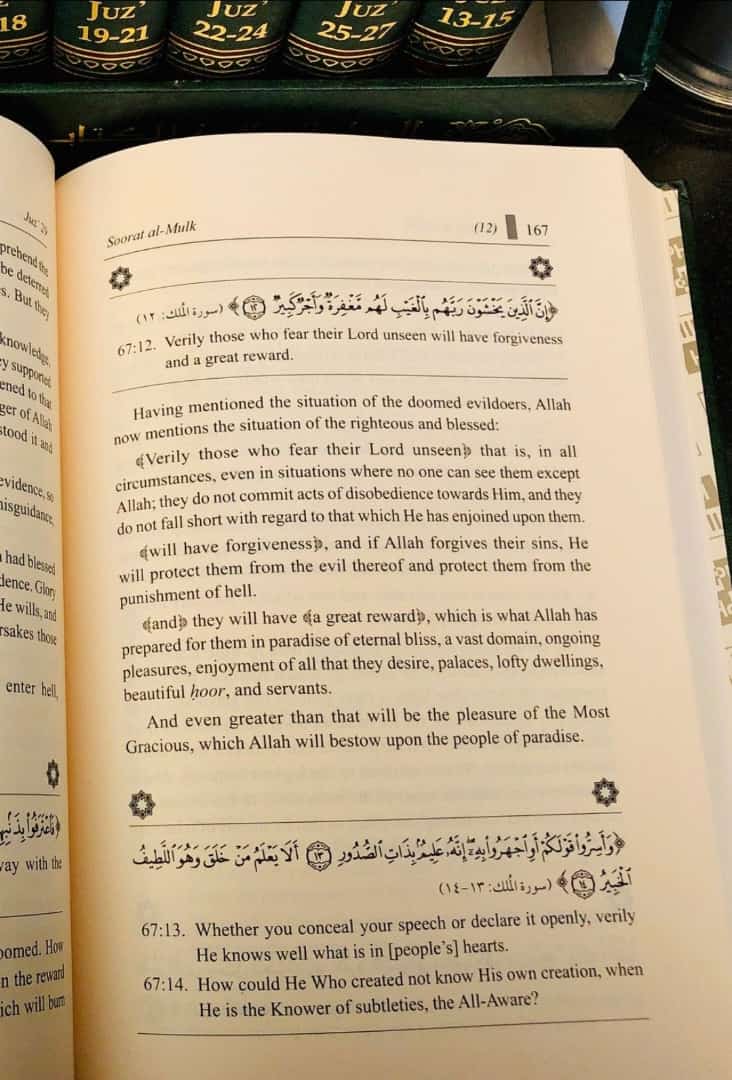 18
JUZ'
19-21
JUZ'
22-24
JUZ'
25-27
13-15
Juz' 29
prehend the
be deterred
s. But they
knowledge,
ey supported
ened to that
ger of Allah
stood it and
evidence, so
misguidance,
h had blessed
dence. Glory
He wills, and
rsakes those
enter hell,
﴿فَٱعْتَرَفُوا۟ بِذَنۢبِهِمْ
way with the
oomed. How
n the reward
ich will burn
Soorat al-Mulk (12) 167
﴿إِنَّ ٱلَّذِينَ يَخْشَوْنَ رَبَّهُم بِٱلْغَيْبِ لَهُم مَّغْفِرَةٌ وَأَجْرٌ كَبِيرٌ ١٢﴾ (سورة الملك: ١٢)
67:12. Verily those who fear their Lord unseen will have forgiveness
and a great reward.
Having mentioned the situation of the doomed evildoers, Allah
now mentions the situation of the righteous and blessed:
﴾Verily those who fear their Lord unseen﴿ that is, in all
circumstances, even in situations where no one can see them except
Allah; they do not commit acts of disobedience towards Him, and they
do not fall short with regard to that which He has enjoined upon them.
﴾will have forgiveness﴿, and if Allah forgives their sins, He
will protect them from the evil thereof and protect them from the
punishment of hell.
﴾and﴿ they will have ﴾a great reward﴿, which is what Allah has
prepared for them in paradise of eternal bliss, a vast domain, ongoing
pleasures, enjoyment of all that they desire, palaces, lofty dwellings,
beautiful ḥoor, and servants.
And even greater than that will be the pleasure of the Most
Gracious, which Allah will bestow upon the people of paradise.
﴿وَأَسِرُّوا۟ قَوْلَكُمْ أَوِ ٱجْهَرُوا۟ بِهِۦٓ إِنَّهُۥ عَلِيمٌۢ بِذَاتِ ٱلصُّدُورِ ١٣ أَلَا يَعْلَمُ مَنْ خَلَقَ وَهُوَ ٱللَّطِيفُ
ٱلْخَبِيرُ ١٤﴾ (سورة الملك: ١٣-١٤)
67:13. Whether you conceal your speech or declare it openly, verily
He knows well what is in [people's] hearts.
67:14. How could He Who created not know His own creation, when
He is the Knower of subtleties, the All-Aware?